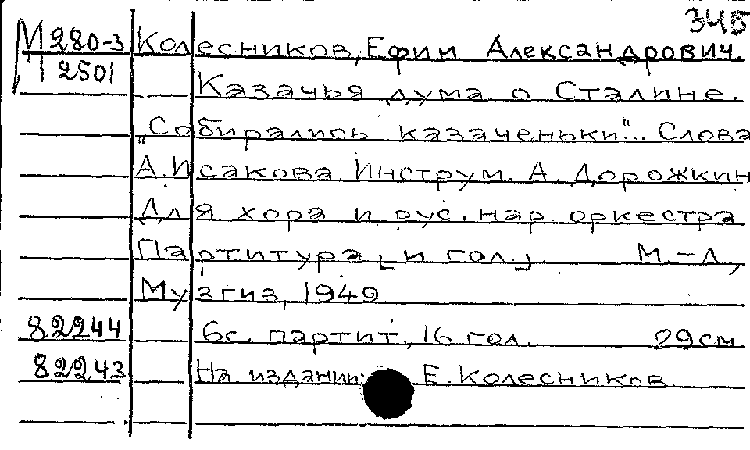 345
М 280-3 Колесников, Ефим Александрович.
2501 Казачья дума о Сталине.
"Собирались казаченьки"... Слова
А. Исакова Инструм. А. Дорожкин
Для хора и рус. нар оркестра
Партитура [и гол.] М.-Л,
Музгиз, 1949
82244 6с. партит, 16 гол. 29см
82243 На издании: Е. Колесников